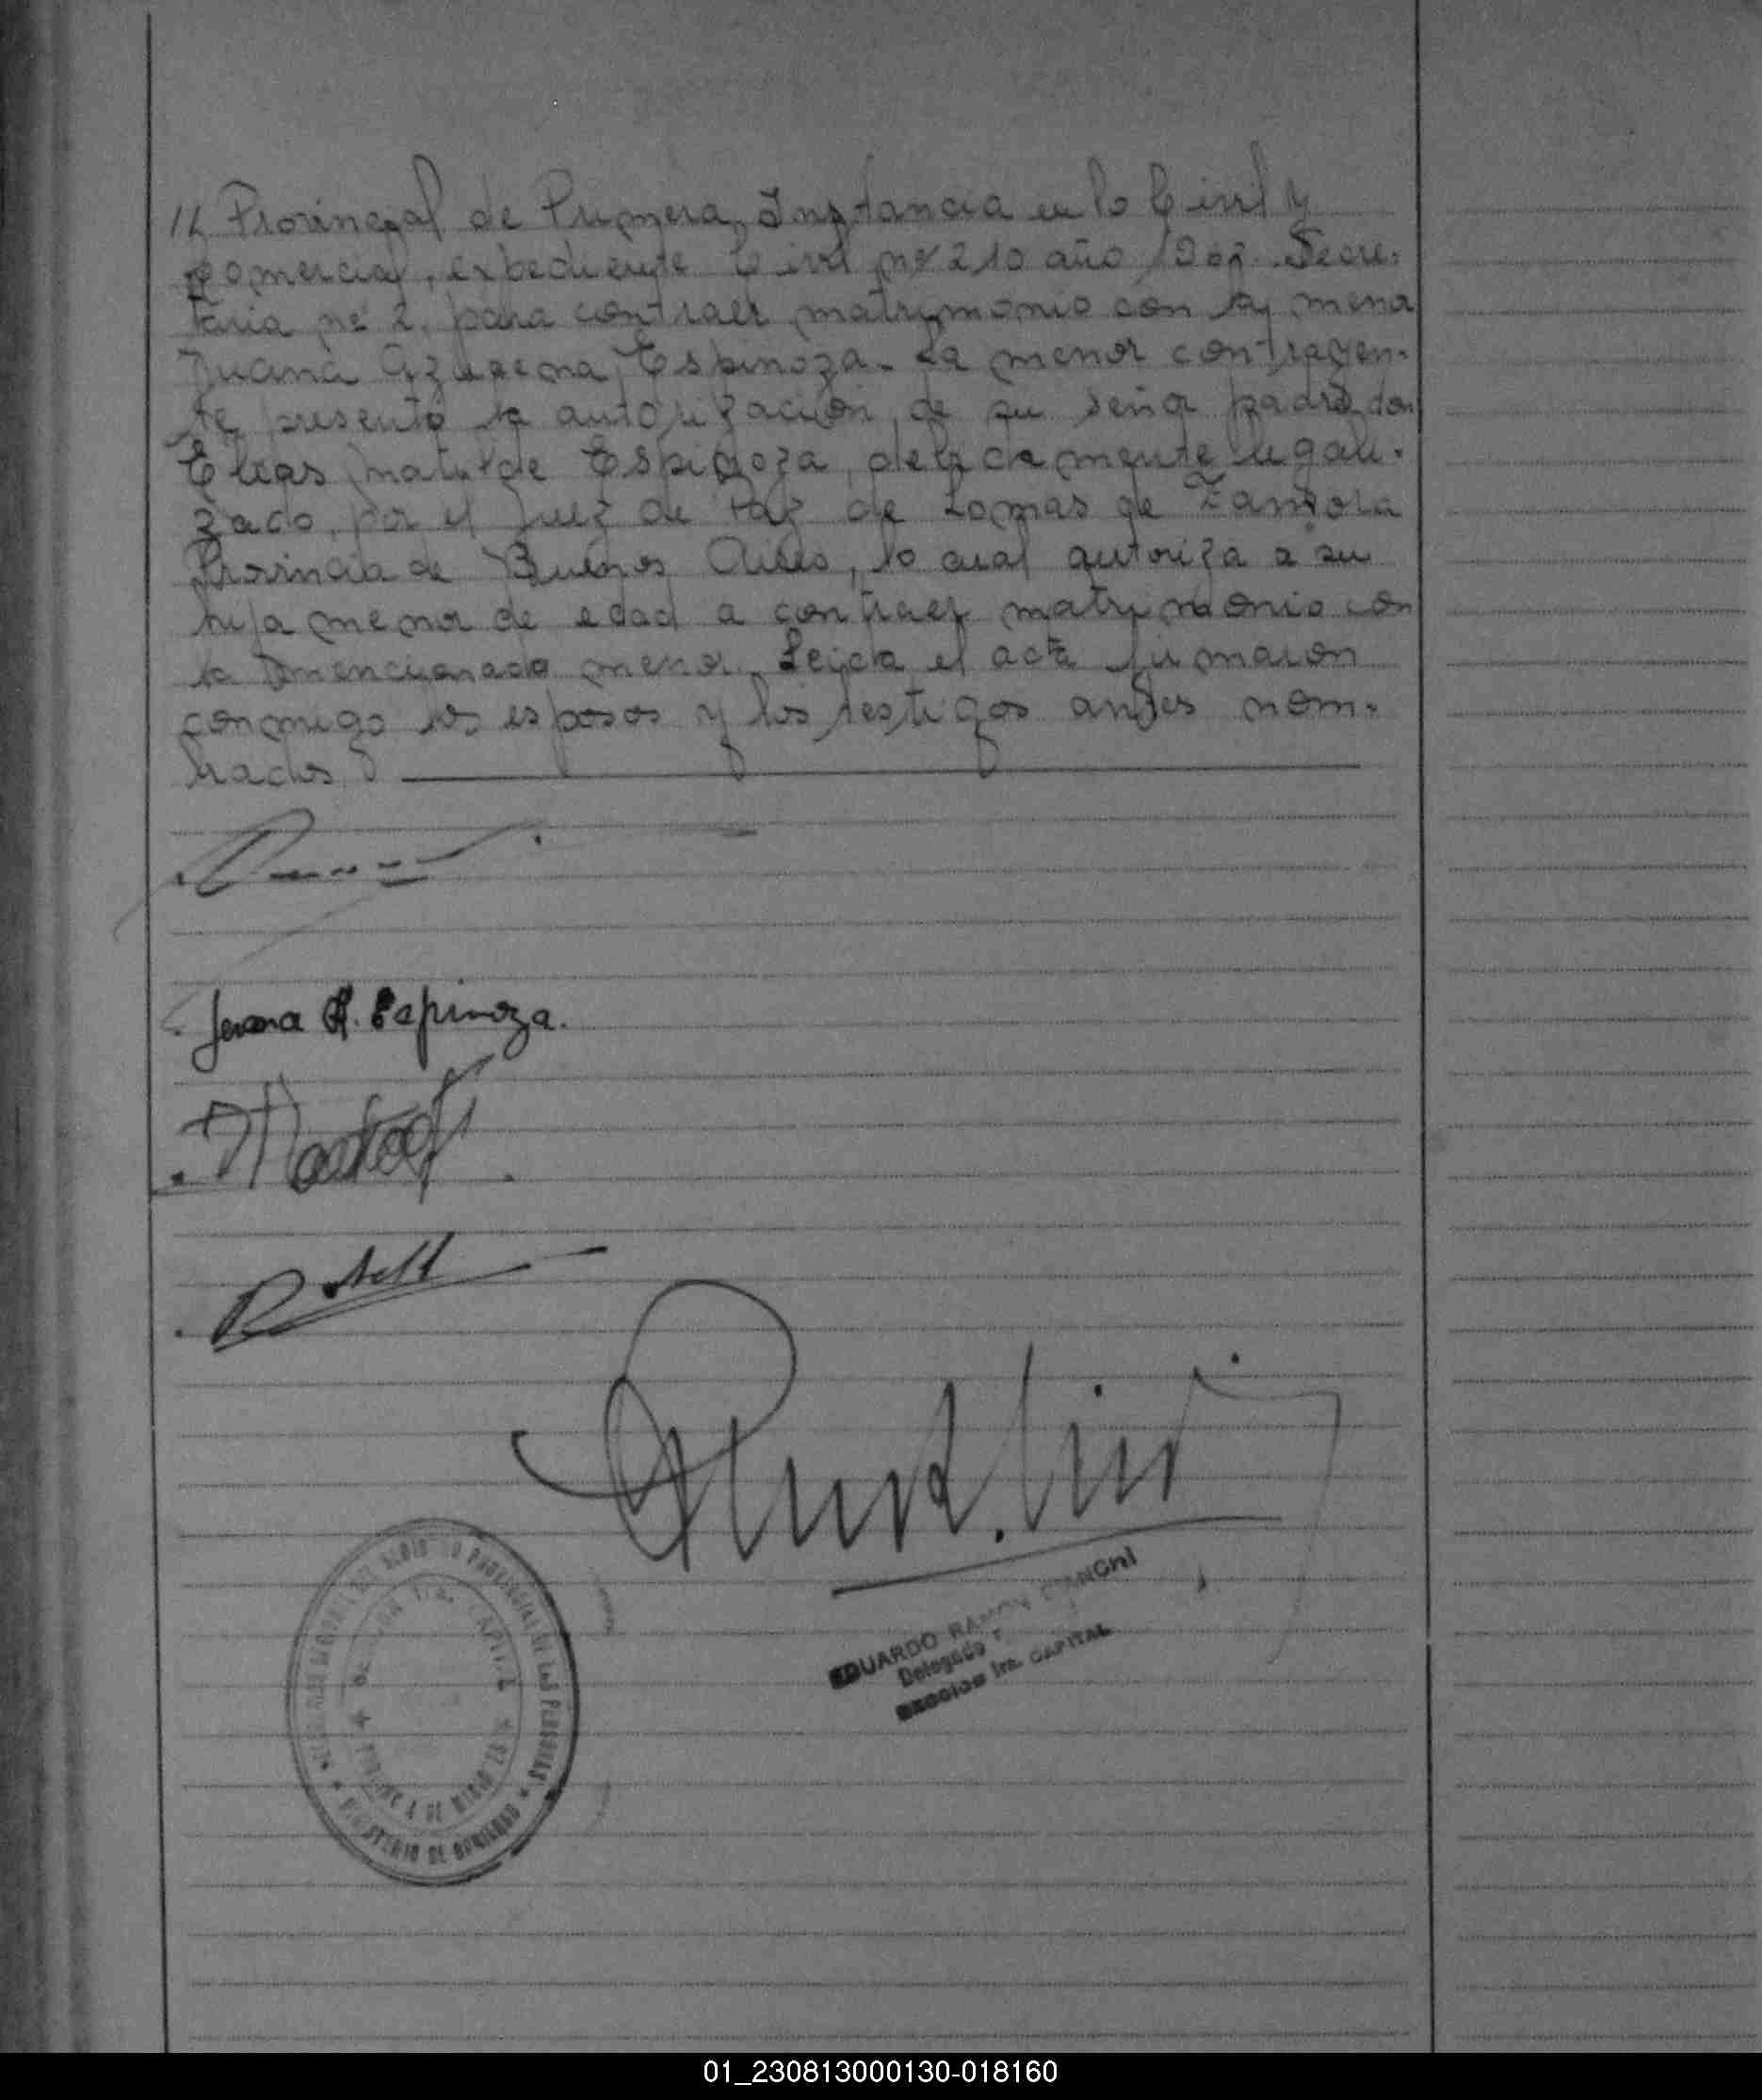 // Provincial de Primera Instancia en lo Civil y
Comercial, expediente Civil nº 210 año Secre-
taria nº 2, para contraer matrimonio con la menor
Juana Azucena Espinoza. La menor contrayen-
te presentó la autorización de su señor padre don
Elias Matilde Espinoza, debidamente legali-
zado, por el Juez de Paz de Lomas de Zamora
Provincia de Buenos Aires, lo cual autoriza a su
hija menor de edad a contraer matrimonio con
la mencionada menor. Leida el acta firmaron
conmigo los esposos y los testigos antes nom-
brados
Juana A. Espinoza.
EDUARDO RAMON
Delegado
SECCION 1ra. CAPITAL
PROVINCIAL DE LAS PERSONAS
MINISTERIO DE GOBIERNO
CAPITAL
01_230813000130-018160